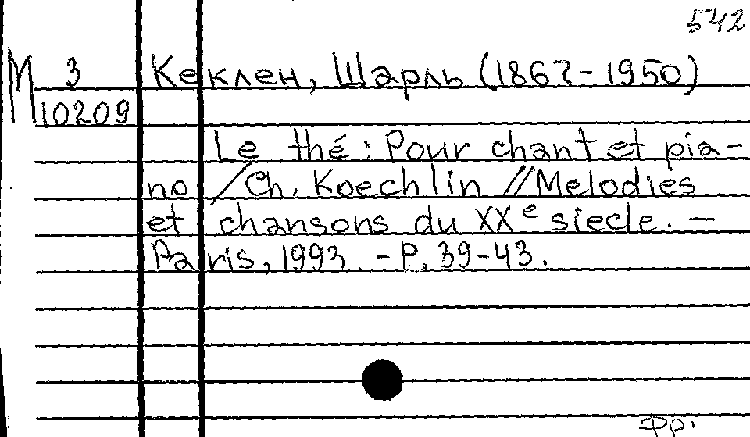 542
М 3 Кеклен, Шарль (1867-1950)
10209
Le thé : Pour chant et pia-
no / Ch. Koechlin // Melodies
et chansons du XXe siecle. –
Paris, 1993. - P. 39-43.
Фр.